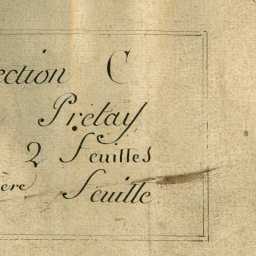 ection C
Prétay
2 feuilles
ère feuille